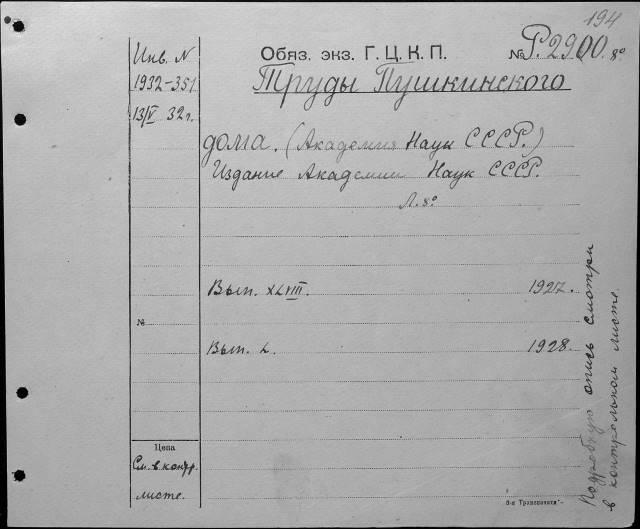 194
Инв. N
1932-351
13/V 32 г.
Обяз. экз. Г. Ц. К. П.
№ Р. 2900. 8º
Труды Пушкинского
дома. (Академия Наук СССР.)
Издание Академии Наук СССР.
Л. 8º
Вып. XLVIII. 1927.
№
Вып. L. 1928.
Цена
См. в контр.
листе.
Подробную опись смотри
в контрольном листе.